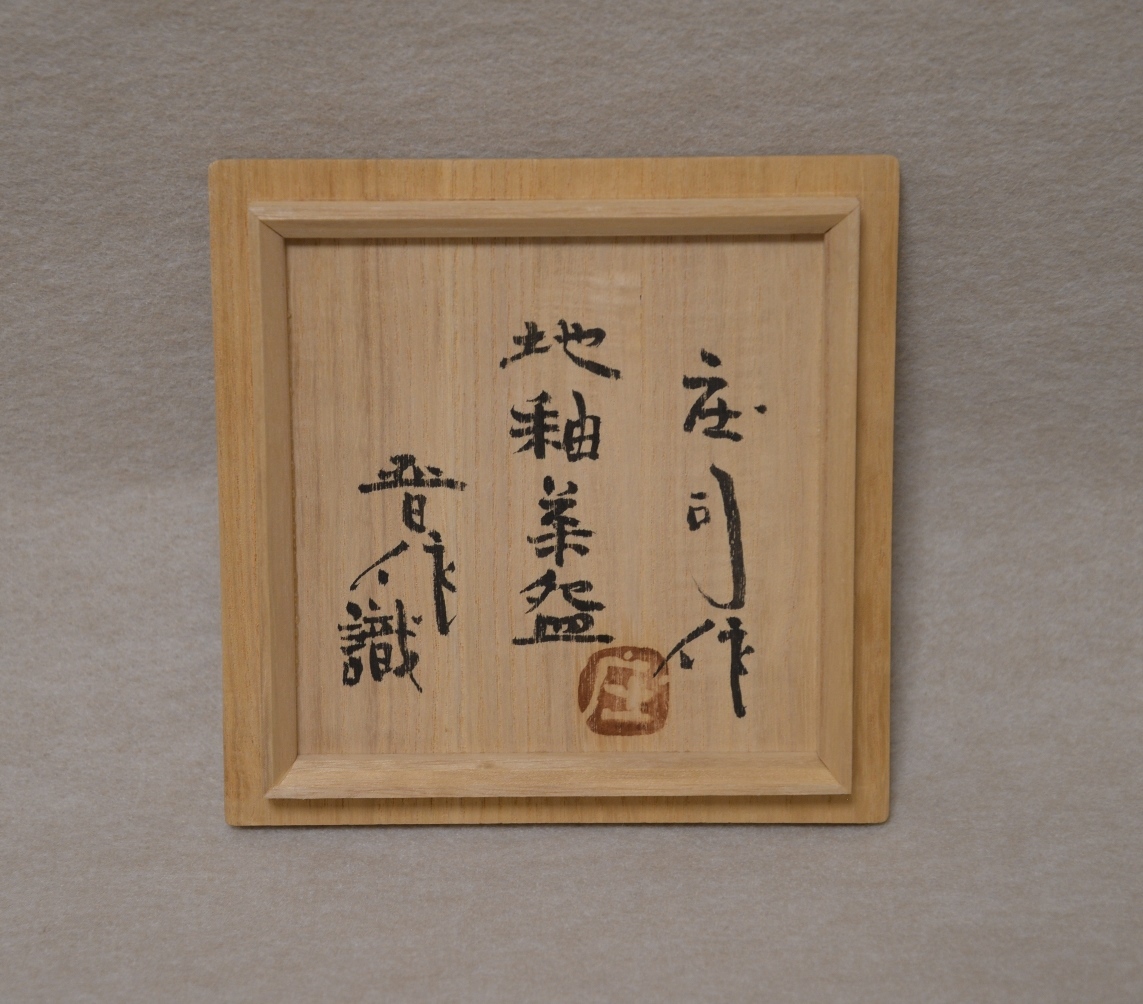 庄司作
地釉茶盌
晋作識
庄